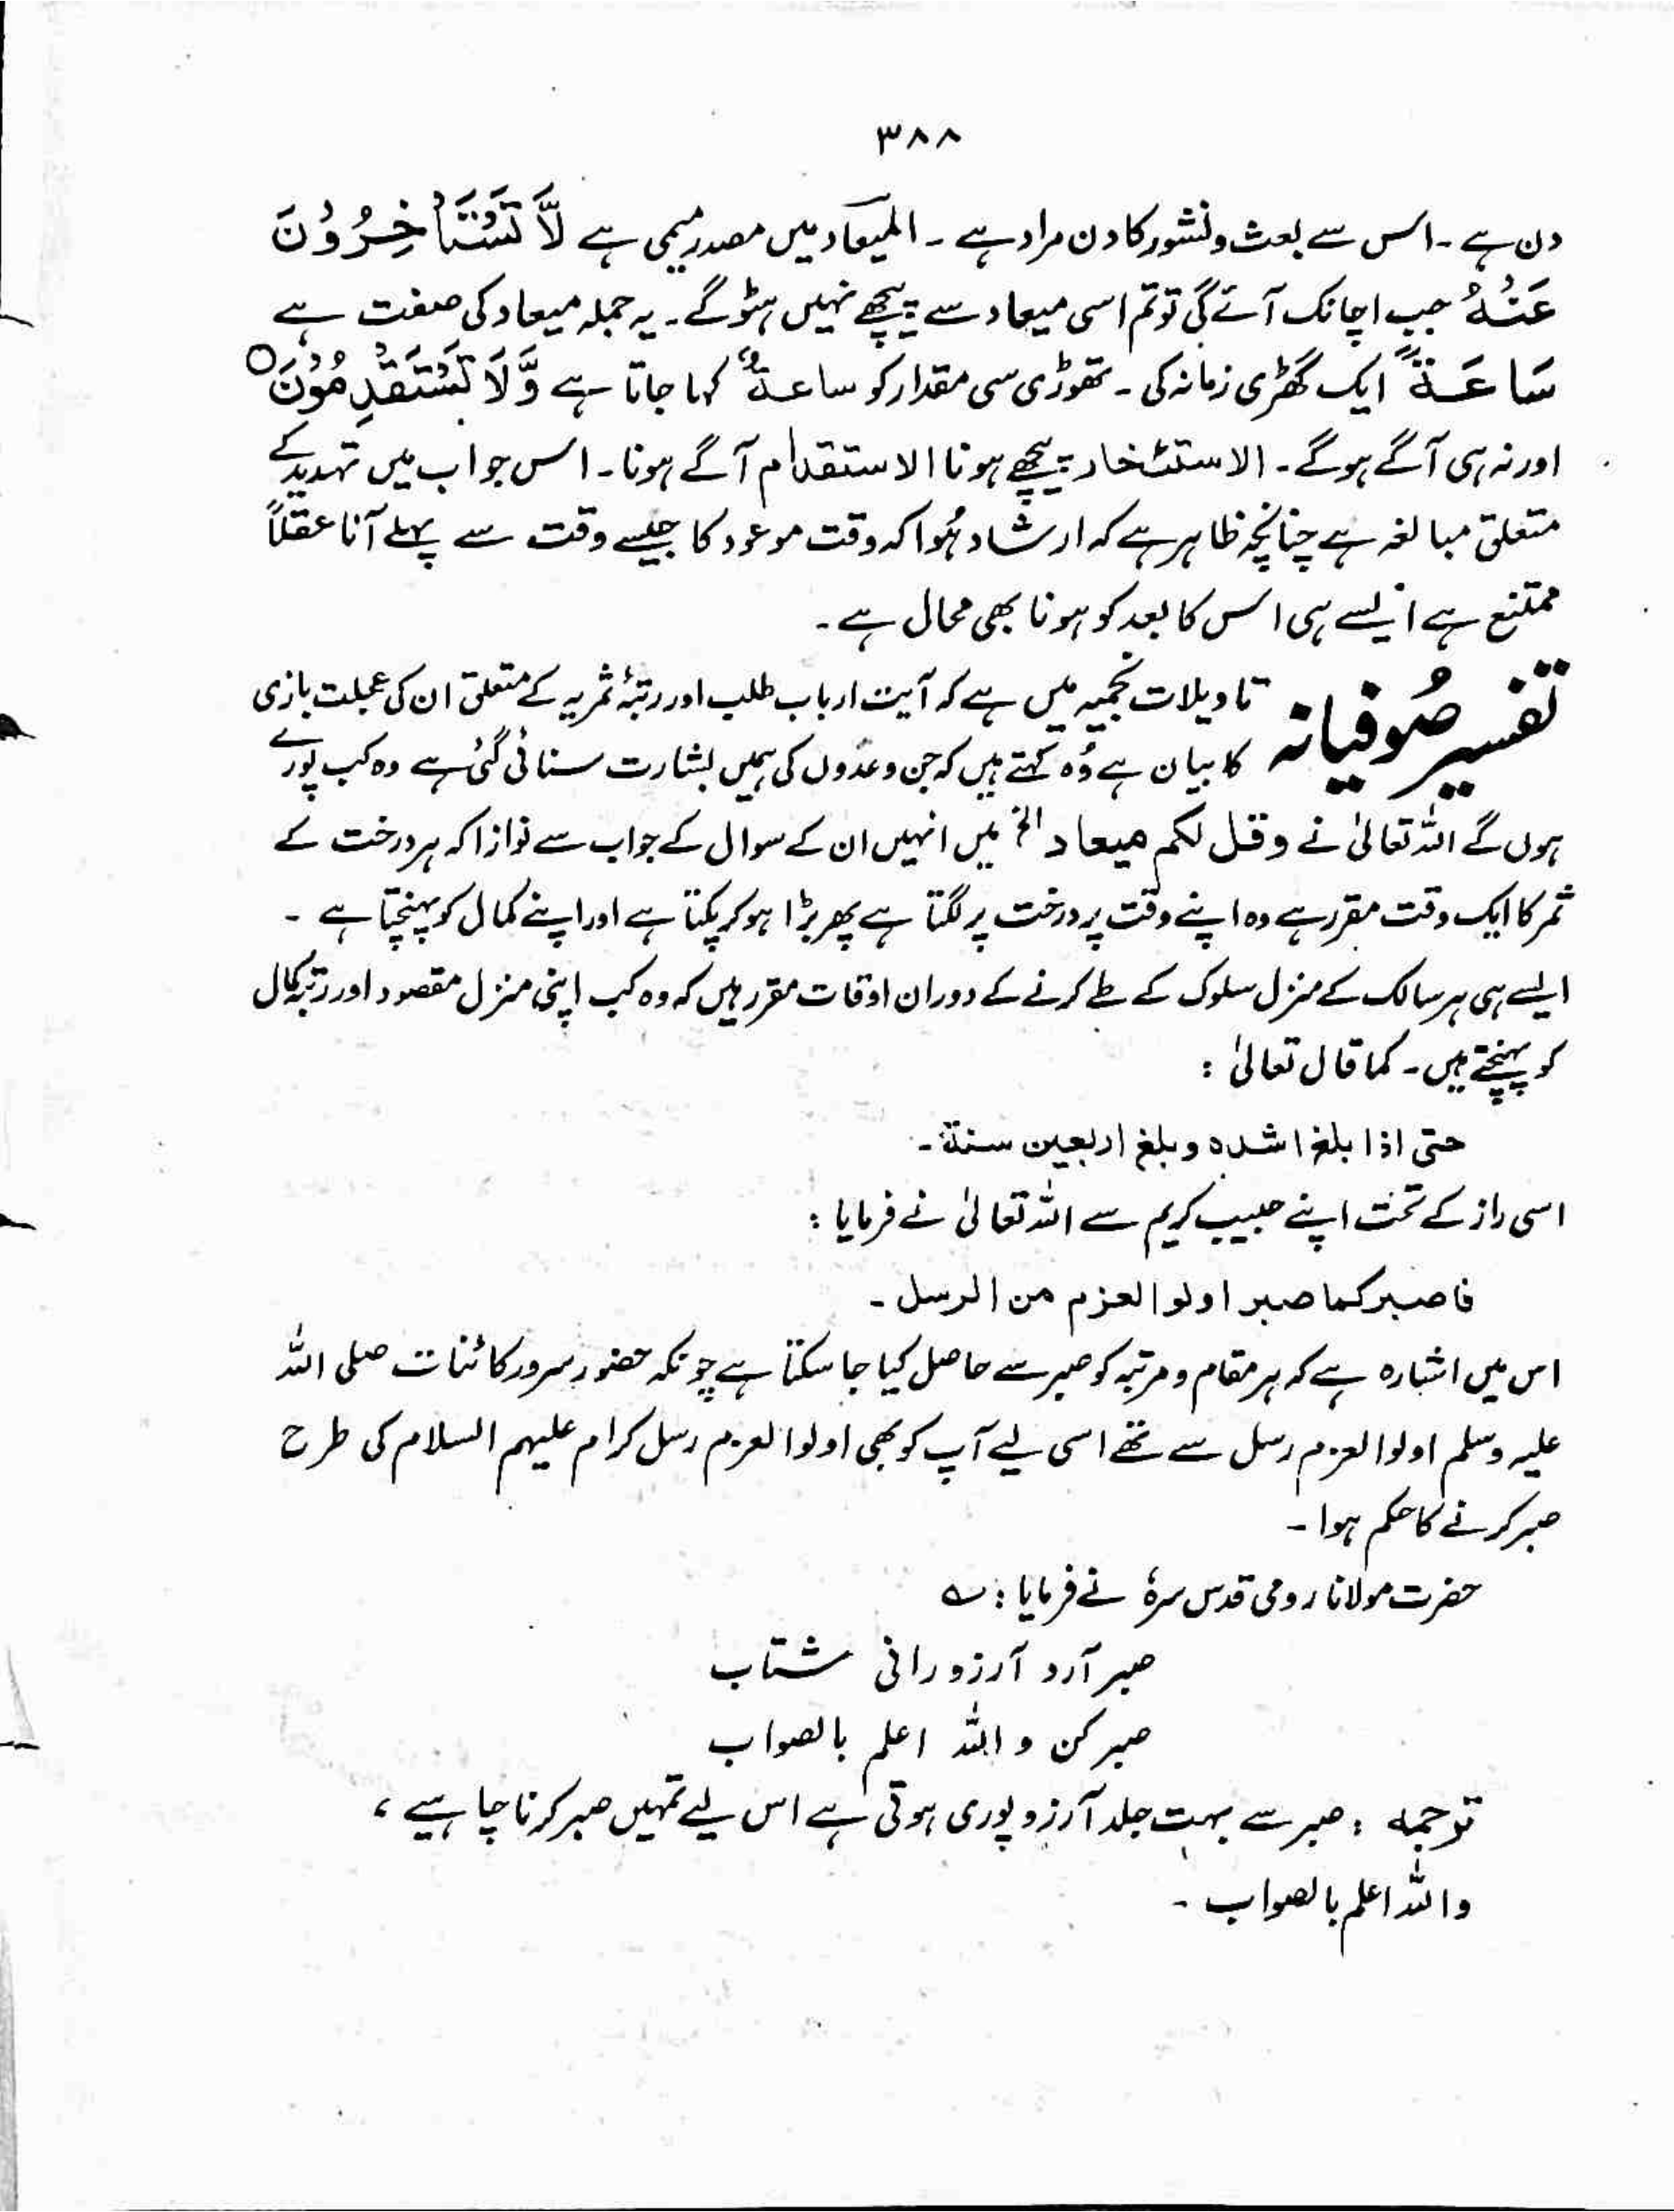 ۳۸۸
دن ہے ۔ اس سے بعث ونشور کا دن مراد ہے ۔ المیعاد میں مصدر میمی ہے لَّا تَسْتَاْخِرُوْنَ
عَنْهُ جب اچانک آئے گی تو تم اسی میعاد سے پیچھے نہیں ہٹو گے ۔ یہ جملہ میعاد کی صفت ہے
سَاعَةً ایک گھڑی زمانہ کی ۔ تھوڑی سی مقدار کو ساعةٌ کہا جاتا ہے وَّلَا تَسْتَقْدِمُوْنَ ○
اور نہ ہی آگے ہوگے ۔ الاستئخار پیچھے ہونا الاستقدام آگے ہونا ۔ اس جواب میں تہدید کے
متعلق مبالغہ ہے چنانچہ ظاہر ہے کہ ارشاد ہُوا کہ وقت موعود کا جیسے وقت سے پہلے آنا عقلاً
ممتنع ہے ایسے ہی اس کا بعد کو ہونا بھی محال ہے ۔
تفسیر صُوفیانہ تاویلات نجمیہ میں ہے کہ آیت ارباب طلب اور رتبۂ ثمریہ کے متعلق ان کی عجلت بازی
کا بیان ہے وُہ کہتے ہیں کہ جن وعدوں کی ہمیں بشارت سنائی گئی ہے وہ کب پورے
ہوں گے اللہ تعالیٰ نے وقل لکم میعاد الخ میں انہیں ان کے سوال کے جواب سے نوازا کہ ہر درخت کے
ثمر کا ایک وقت مقرر ہے وہ اپنے وقت پر درخت پر لگتا ہے پھر بڑا ہو کر پکتا ہے اور اپنے کمال کو پہنچتا ہے ۔
ایسے ہی ہر سالک کے منزل سلوک کے طے کرنے کے دوران اوقات مقرر ہیں کہ وہ کب اپنی منزل مقصود اور رتبۂ کمال
کو پہنچتے ہیں ۔ کما قال تعالیٰ :
حتی اذا بلغ اشدہ وبلغ اربعین سنة ۔
اسی راز کے تحت اپنے حبیب کریم سے اللہ تعالیٰ نے فرمایا :
فاصبر کما صبر اولوا العزم من الرسل ۔
اس میں اشارہ ہے کہ ہر مقام و مرتبہ کو صبر سے حاصل کیا جا سکتا ہے چونکہ حضور سرور کائنات صلی اللہ
علیہ وسلم اولوا العزم رسل سے تھے اسی لیے آپ کو بھی اولوا العزم رسل کرام علیہم السلام کی طرح
صبر کرنے کا حکم ہوا ۔
حضرت مولانا رومی قدس سرہٗ نے فرمایا : ؎
صبر آرد آرزو رانی شتاب
صبر کن و اللہ اعلم بالصواب
ترجمہ : صبر سے بہت جلد آرزو پوری ہوتی ہے اس لیے تمہیں صبر کرنا چاہیے ،
واللہ اعلم بالصواب ۔